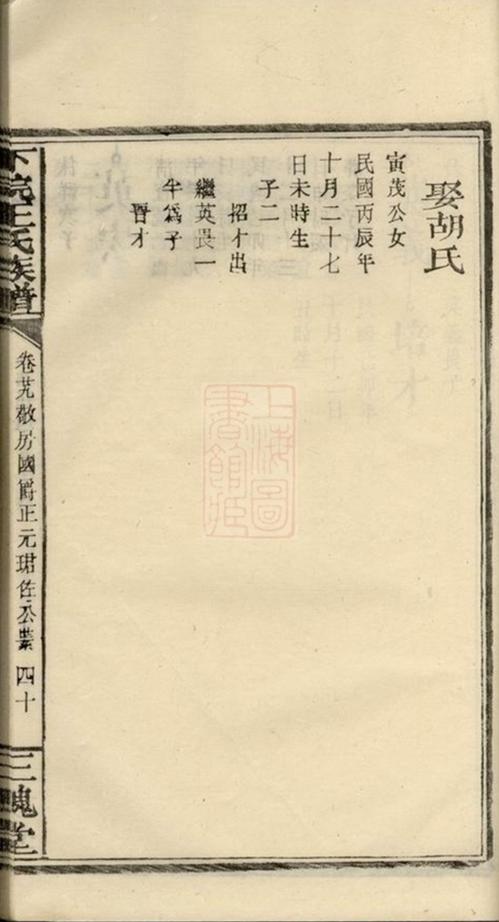 娶胡氏
寅茂公女
民國丙辰年
十月二十七
日未時生
子二
招才出
繼英畏一
半為子
晉才
下院王氏族譜
卷芫敬房國爵正元珺佐公業 四十
三槐堂
上海圖書館